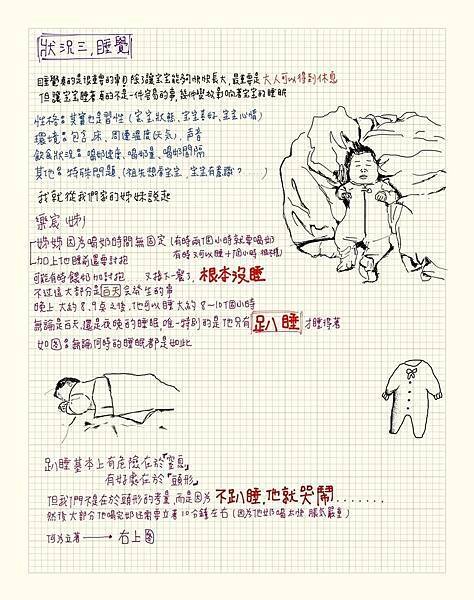 狀況三,睡覺
睡覺真的是很重要的事 除了讓寶寶能夠快快長大,最重要是大人可以得到休息
但讓寶寶睡著真的不是一件容易的事,幾件變數影响著寶寶的睡眠
性格:其實也是習性(寶寶狀態、寶寶喜好、寶寶心情)
環境:包含床、周遭溫度(天氣)、声音
飲食狀況:喝奶速度、喝奶量、喝奶間隔
其他:特殊問題(祖先想看寶寶、寶寶有意識?......)
我就從我們家的姊妹說起
樂宸(姊)
姊姊因為喝奶時間無固定(有時兩1個小時就要喝奶)
有時又可以睡十1個小時
加上他睡前還要討抱
可能有時餵奶加討抱 又接下一餐了,根本沒睡
不過這大部分是百天會發生的事
晚上大約8.9点之後,他可以睡大約8-10個小時
無論是百天,還是夜晚的睡眠,唯一特別的是他只有 趴睡 才睡得著
如圖:無論何時的睡眠都是如此
趴睡基本上有危險在於「窒息」
有好處在於「頭形」
但我們不是在於頭形的考量,而是因為 不趴睡,他就哭鬧.......
然後大部分他喝完奶还需要立著10分鐘左右(因為他奶喝太快,脹氣嚴重)
何為立著→右上圖